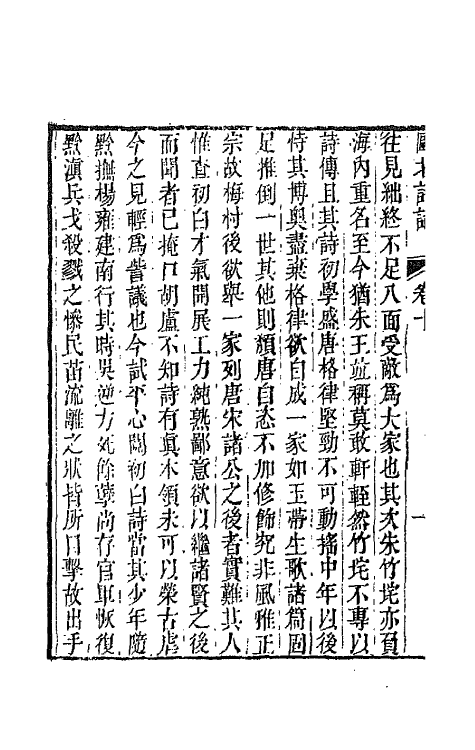 甌北詩話 卷十 一
往見絀終不足八面受敵爲大家也其次朱竹垞亦負
海内重名至今猶朱王並稱莫敢軒輊然竹垞不專以
詩傳且其詩初學盛唐格律堅勁不可動搖中年以後
恃其博奧盡棄格律欲自成一家如玉帶生歌諸篇固
足推倒一世其他則頹唐自恣不加修飾究非風雅正
宗故梅村後欲舉一家列唐宋諸公之後者實難其人
惟查初白才氣開展工力純熟鄙意欲以繼諸賢之後
而聞者已掩口胡盧不知詩有眞本領未可以榮古虐
今之見輕爲訾議也今試平心閱初白詩當其少年隨
黔撫楊雍建南行其時吳逆方死餘孽尚存官軍恢復
黔滇兵戈殺戮之慘民苗流離之狀皆所目擊故出手